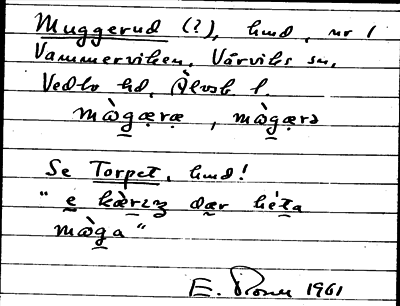 Muggerud (?), hmd, nr 1
Vammerviken, Vårviks sn,
Vedbo hd, Älvsb l.
mɷ̀gæræ, mɷ̀gærə
Se Torpet, hmd!
" e kæ̀rɩŋ dær hé̀ta
mɷ̀ga"
E. 1961